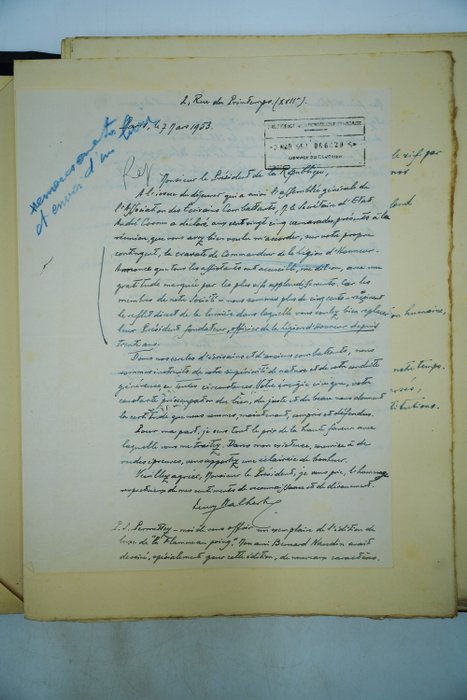 2, Rue du Printemps (XVIIe).
Paris, le 7 Mars 1953.
remerciements
et envoi d'un livre
PRÉSIDENCE DE LA RÉPUBLIQUE FRANÇAISE
MAR 53 006020
SERVICE DU COURRIER
Monsieur le Président de la République,
A l'issue du déjeuner qui a suivi l'assemblée générale de
l'Association des Écrivains Combattants, le Secrétaire d'État
André a déclaré aux cent vingt cinq camarades, présents à la
réunion, que vous avez bien voulu m'accorder, sur votre propre
contingent, la cravate de Commandeur de la Légion d'Honneur.
Annonce que tous les assistants ont accueillie, me dit-on, avec une
gratitude marquée par les plus vifs applaudissements. Car les
membres de notre Société - nous sommes plus de cinq cents - reçoivent
le reflet direct de la lumière dans laquelle vous voulez bien replacer
leur Président fondateur, officier de la Légion d'Honneur depuis
trente ans.
Dans nos cercles d'écrivains et d'anciens combattants, nous
sommes instruits de votre supériorité de nature et de votre conduite
généreuse en toutes circonstances. Votre énergie civique, votre
constante préoccupation du bien, du juste et du beau nous donnent
la certitude que nous sommes, maintenant, compris et défendus.
Pour ma part, je sens tout le prix de la haute faveur avec
laquelle vous me traitez. Dans mon existence, soumise à de
rudes épreuves, vous apportez une éclaircie de bonheur.
Veuillez agréer, Monsieur le Président, je vous prie, l'hommage
respectueux de mes sentiments de reconnaissance et de dévouement.
Henry Malherbe
P.S. Permettez-moi de vous offrir un exemplaire de l'édition de
luxe de "La Flamme au poing". Mon ami Bernard Naudin avait
dessiné, spécialement pour cette édition, de nouveaux caractères.
par
humaine,
notre temps.